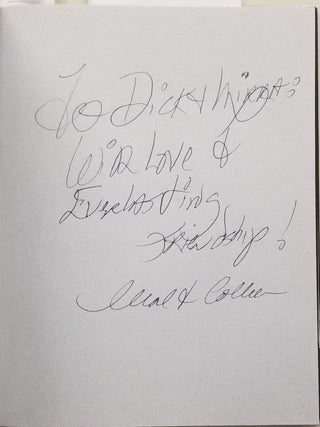 To Dick & Myrna:
With Love &
Everlasting
Friendship!
Collier